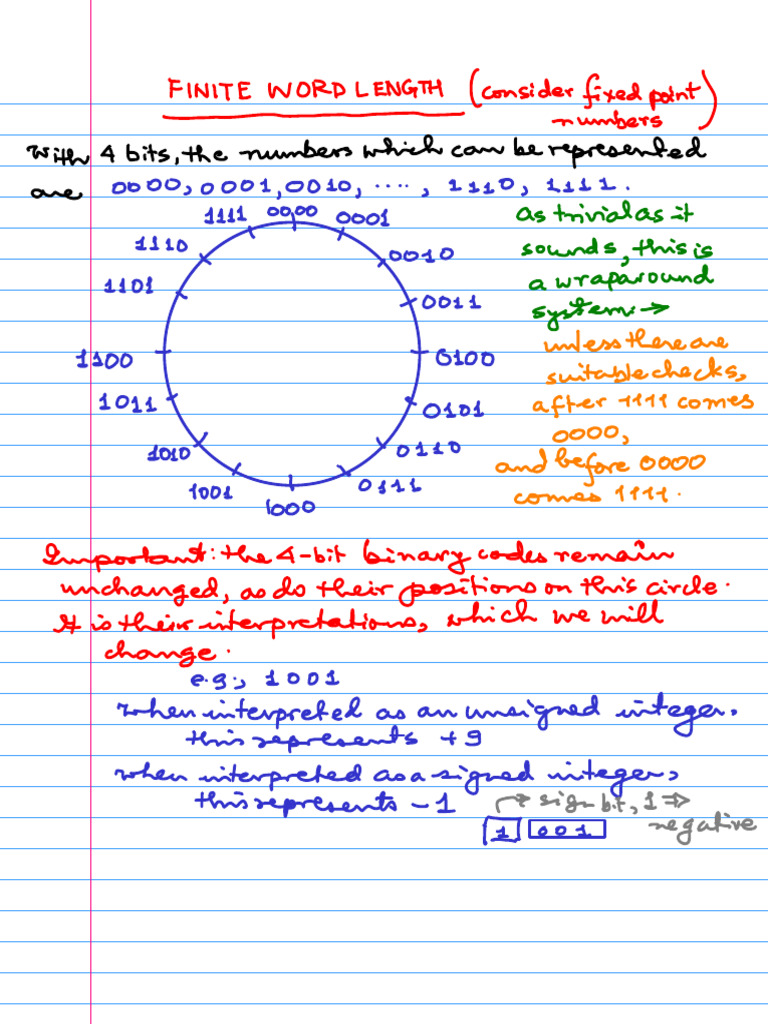 FINITE WORD LENGTH (consider fixed point numbers)
With 4 bits, the numbers which can be represented
are 0000, 0001, 0010, ...., 1110, 1111.
1111 0000 0001
1110 0010
1101 0011
1100 0100
1011 0101
1010 0110
1001 0111
1000
As trivial as it
sounds, this is
a wraparound
system →
unless there are
suitable checks,
after 1111 comes
0000,
and before 0000
comes 1111.
Important: the 4-bit binary codes remain
unchanged, as do their positions on this circle.
It is their interpretations, which we will
change.
e.g., 1001
When interpreted as an unsigned integer,
this represents +9
When interpreted as a signed integer,
this represents -1
sign bit, 1 ⇒
negative
1 001